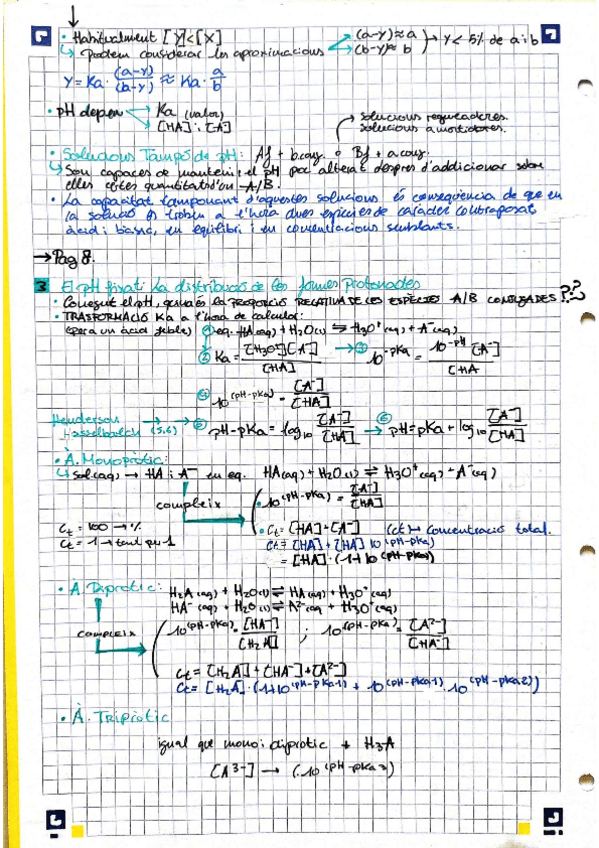 • Habitualment [Y]<[X]
↳ Podem considerar les aproximacions
(a-y)≈a
(b-y)≈ b
→ Y< 5% de a i b
Y = Ka · (a-y)/(b-y) ≈ Ka · a/b
• pH depen
Ka (valor)
[HA] i [A]
solucions reguladores.
solucions amortidores.
• Solucions Tampó de pH: Af + b.conj. o Bf + a.conj.
↳ Son capaces de mantenir el pH poc alterat després d'addicionar sobre
elles certes quantitats d'un A/B.
• La capacitat tamponant d'aquestes solucions és conseqüencia de que en
la solució es troben a l'hora dues espècies de caràcter contraposat
àcid i bàsic, en equilibri i en concentracions semblants.
→ Pag 8.
3 El pH fixat i la distribució de les formes Protonades
• Conegut el pH, quina és la proporció RELATIVA DE LES ESPÈCIES A/B CONJUGADES???
• TRASFORMACIÓ Ka a l'hora de calcular:
(para un àcid feble)
① eq. HA(aq) + H2O(l) ⇌ H3O+(aq) + A-(aq)
② Ka = [H3O+][A-]/[HA] → ③ 10^-pKa = 10^-pH [A-]/[HA
④ 10^(pH-pKa) = [A-]/[HA]
Henderson
Hasselbalch → (5,6) → ⑤ pH-pKa = log10 [A-]/[HA] → ⑥ pH = pKa + log10 [A-]/[HA]
• À. Monopròtic:
↳ Sol.(aq) → HA i A- en eq. HA(aq) + H2O(l) ⇌ H3O+(aq) + A-(aq)
compleix
• 10^(pH-pKa) = [A-]/[HA]
Ct = 100 → %
Ct = 1 → tant per 1
• Ct = [HA] + [A-] (Ct) → Concentració total.
Ct = [HA] + [HA] 10^(pH-pKa)
= [HA] · (1+10^(pH-pKa))
• À. Dipròtic:
H2A(aq) + H2O(l) ⇌ HA-(aq) + H3O+(aq)
HA-(aq) + H2O(l) ⇌ A2-(aq + H3O+(aq)
compleix
10^(pH-pKa) = [HA-]/[H2A] ; 10^(pH-pKa) = [A2-]/[HA-]
Ct = [H2A] + [HA-] + [A2-]
Ct = [H2A] · (1+10^(pH-pKa1) + 10^(pH-pKa1) · 10^(pH-pKa2))
• À. Tripròtic
igual que mono i dipròtic + H3A
[A3-] → (·10^(pH-pKa3)